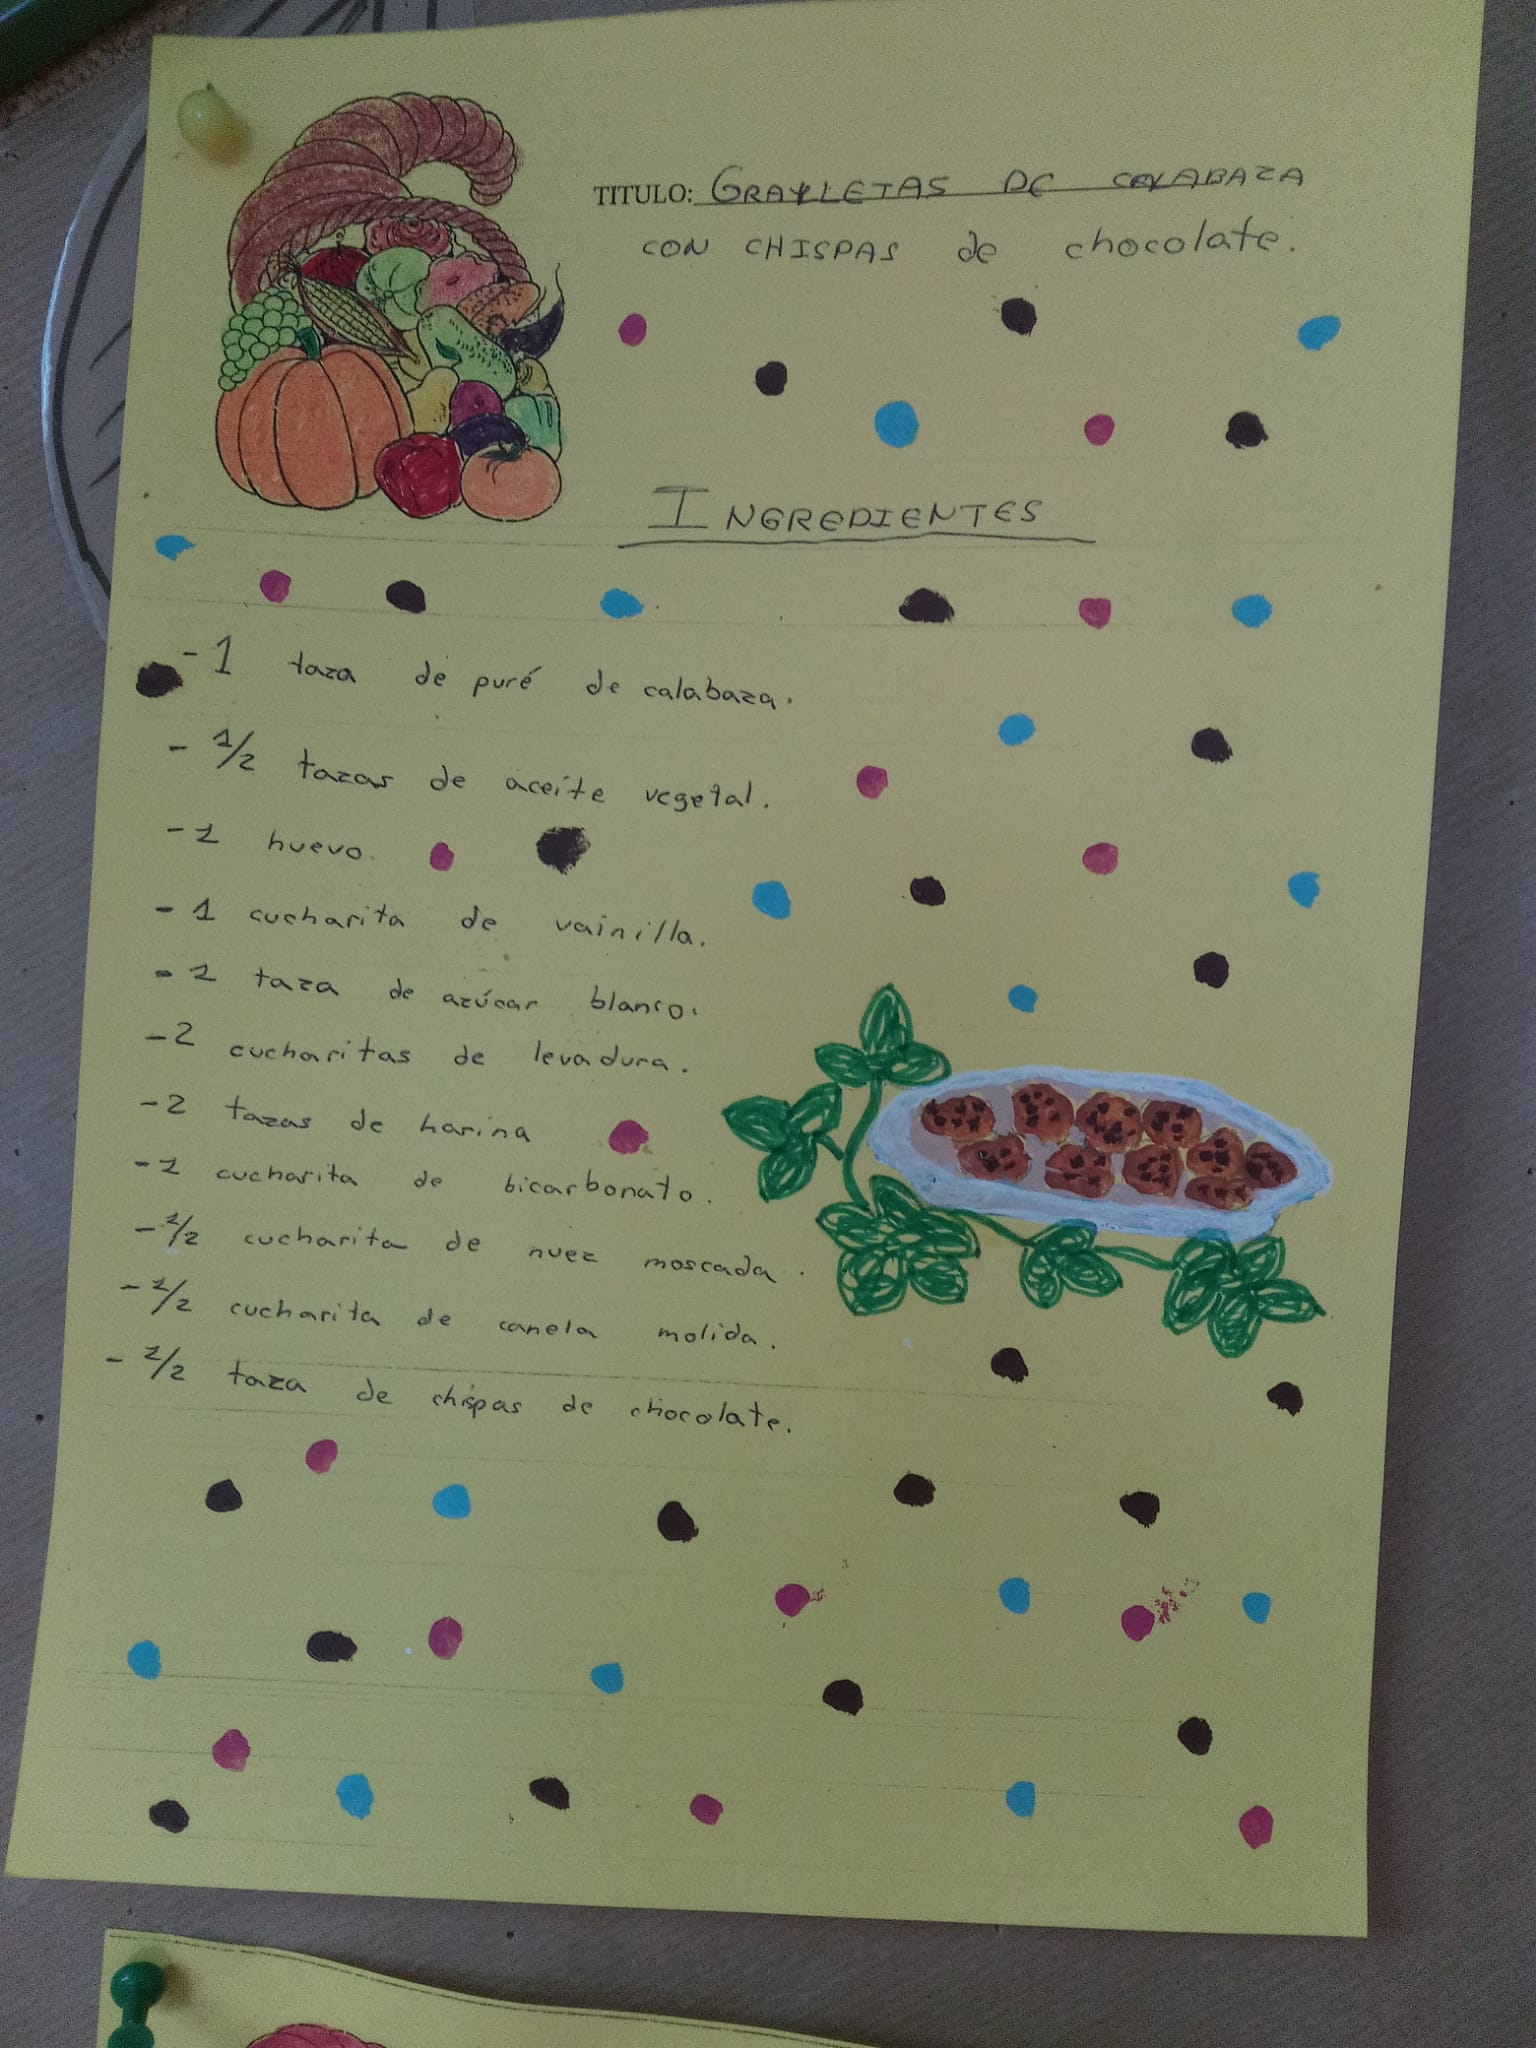 TITULO: GRAYLETAS DE CALABAZA
CON CHISPAS de chocolate.
INGREDIENTES
- 1 taza de puré de calabaza.
- 1/2 tazas de aceite vegetal.
- 1 huevo.
- 1 cucharita de vainilla.
- 1 taza de azúcar blanco.
- 2 cucharitas de levadura.
- 2 tazas de harina
- 1 cucharita de bicarbonato.
- 1/2 cucharita de nuez moscada.
- 1/2 cucharita de canela molida.
- 1/2 taza de chispas de chocolate.